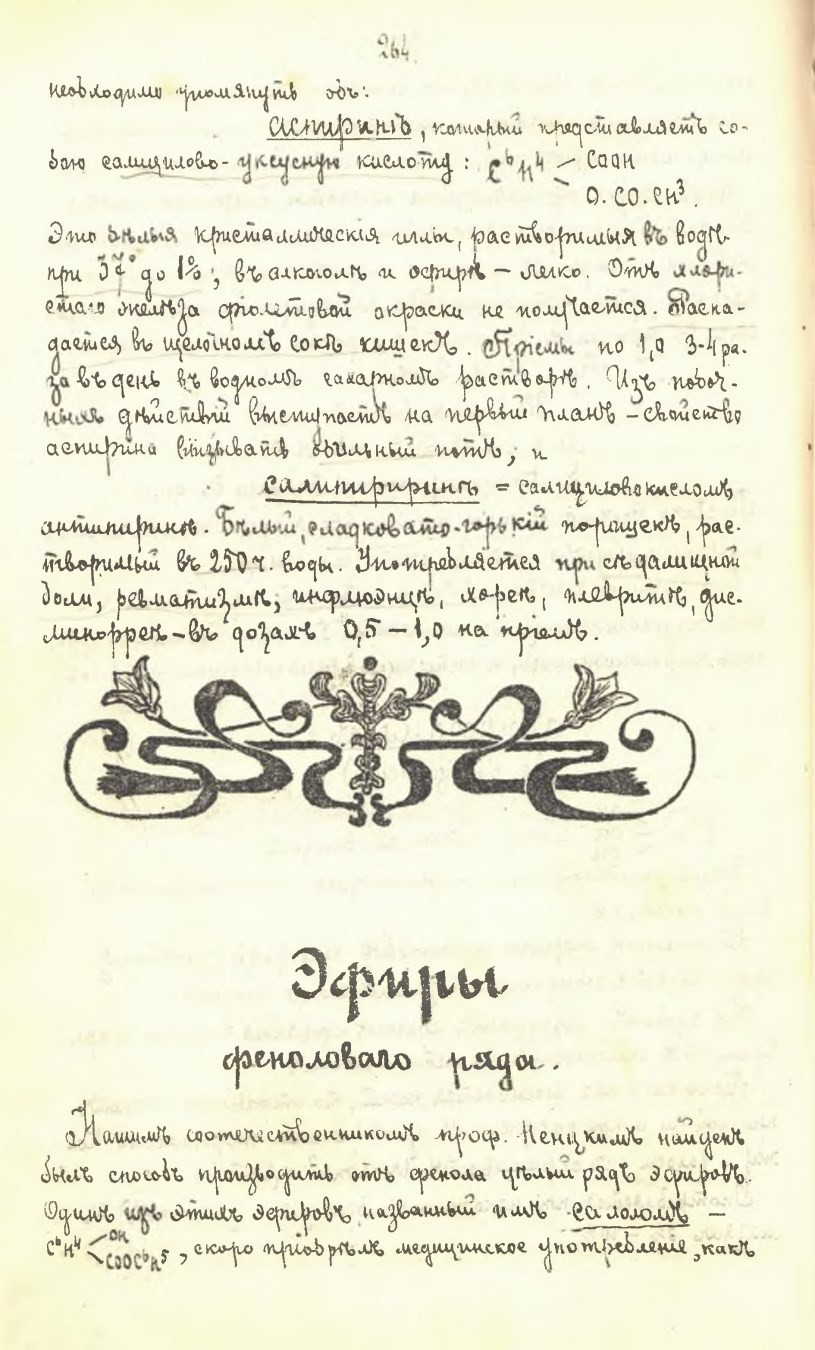 264
необходимо упомянуть объ:
Аспиринъ, который представляетъ со-
бою салицилово-уксусную кислоту: C⁶H⁴ < COOH
O.CO.CH³.
Это бѣлыя кристаллическія иглы, растворимыя въ водѣ
при 37° до 1%; въ алкоголѣ и эфирѣ – легко. Отъ хлори-
стаго желѣза фіолетовой окраски не получается. Распа-
дается въ щелочномъ сокѣ кишекъ. Пріемы по 1,0 3-4 ра-
за въ день въ водномъ сахарномъ растворѣ. Изъ побоч-
ныхъ дѣйствій выступаетъ на первый планъ – свойство
аспирина вызывать обильный потъ, и
салипиринъ = салициловокисломъ
антипиринѣ. Бѣлый, сладковато-горькій порошекъ, рас-
творимый въ 250 ч. воды. Употребляется при сѣдалищной
боли, ревматизмѣ, инфлюэнцѣ, хореѣ, плевритѣ, дис-
миноррѣѣ – въ дозахъ 0,5 – 1,0 на пріемъ.
Эфиры
феноловаго ряда.
Нашимъ соотечественникомъ проф. Ненцкимъ найденъ
былъ способъ производить отъ фенола цѣлый рядъ эфировъ.
Одинъ изъ этихъ эфировъ, названный имъ салоломъ –
C⁶H⁴ < OH COOC⁶H⁵, скоро пріобрѣлъ медицинское употребленіе, какъ